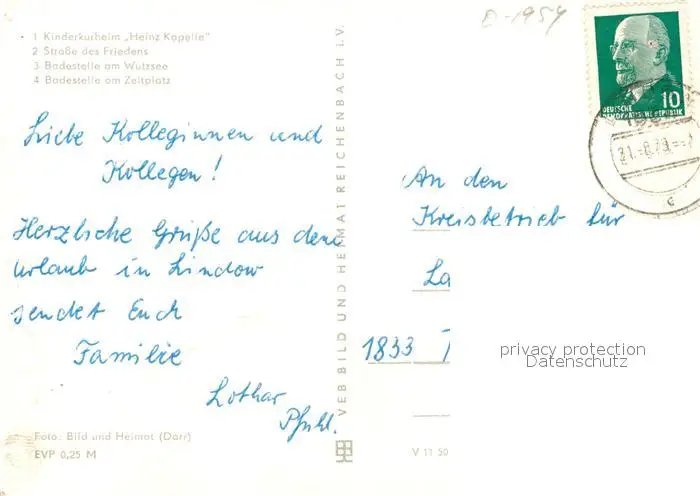 D-1954
1 Kinderkurheim „Heinz Kapelle"
2 Straße des Friedens
3 Badestelle am Wutzsee
4 Badestelle am Zeltplatz
Liebe Kolleginnen und
Kollegen!
Herzliche Grüße aus dem
Urlaub in Lindow
sendet Euch
Familie
Lothar
Pfuhl.
Foto: Bild und Heimat (Darr)
EVP 0,25 M
VEB BILD UND HEIMAT REICHENBACH I.V.
10
DEUTSCHE
DEMOKRATISCHE REPUBLIK
An den
Kreisbetrieb für
La
1833
privacy protection
Datenschutz
V 11 50